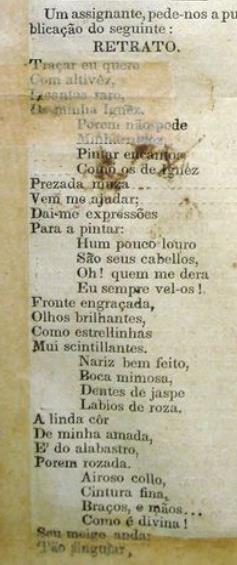 Um assignante, pede-nos a pu
blicação do seguinte:
RETRATO.
Traçar eu quero
Com altivêz,
Encantos raro,
De minha Ignêz.
Porem não pode
Minha
Pintar encantos
Como os de Ignêz
Prezada muza
Vem me ajudar;
Dai-me expressões
Para a pintar:
Hum pouco louro
São seus cabellos,
Oh! quem me dera
Eu sempre vel-os!
Fronte engraçada,
Olhos brilhantes,
Como estrellinhas
Mui scintillantes.
Nariz bem feito,
Boca mimosa,
Dentes de jaspe
Labios de roza.
A linda côr
De minha amada,
E' do alabastro,
Porem rozada.
Airoso collo,
Cintura fina,
Braços, e mãos...
Como é divina!
Seu meigo andar
Tão singular,